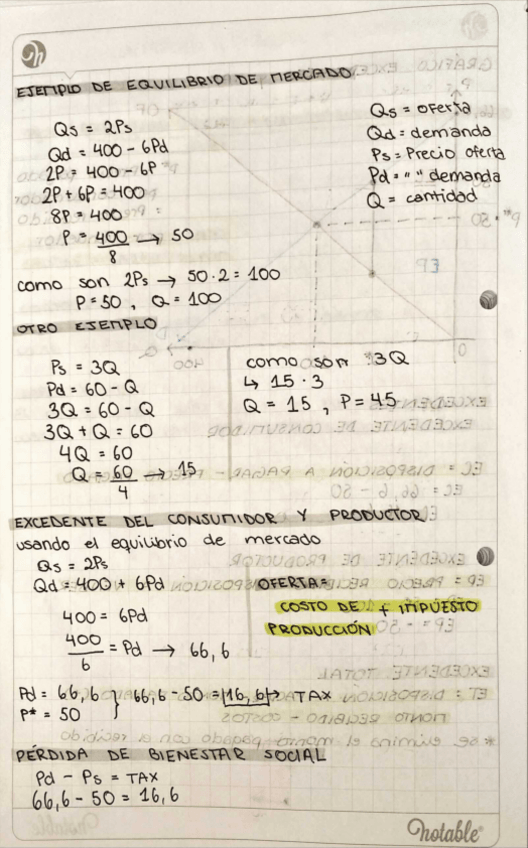 EJEMPLO DE EQUILIBRIO DE MERCADO
Qs = 2Ps
Qd = 400 - 6Pd
2P = 400 - 6P
2P + 6P = 400
8P = 400
P = 400/8 → 50
Qs = oferta
Qd = demanda
Ps = Precio oferta
Pd = " " demanda
Q = cantidad
como son 2Ps → 50·2 = 100
P = 50 , Q = 100
OTRO EJEMPLO
Ps = 3Q
Pd = 60 - Q
3Q = 60 - Q
3Q + Q = 60
4Q = 60
Q = 60/4 → 15
como son 3Q
↳ 15·3
Q = 15 , P = 45
EXCEDENTE DEL CONSUMIDOR Y PRODUCTOR
usando el equilibrio de mercado
Qs = 2Ps
Qd = 400 + 6Pd
400 = 6Pd
400/6 = Pd → 66,6
OFERTA =
COSTO DE + IMPUESTO
PRODUCCIÓN
Pd = 66,6 } 66,6 - 50 = 16,6 → TAX
P* = 50
PÉRDIDA DE BIENESTAR SOCIAL
Pd - Ps = TAX
66,6 - 50 = 16,6
notable